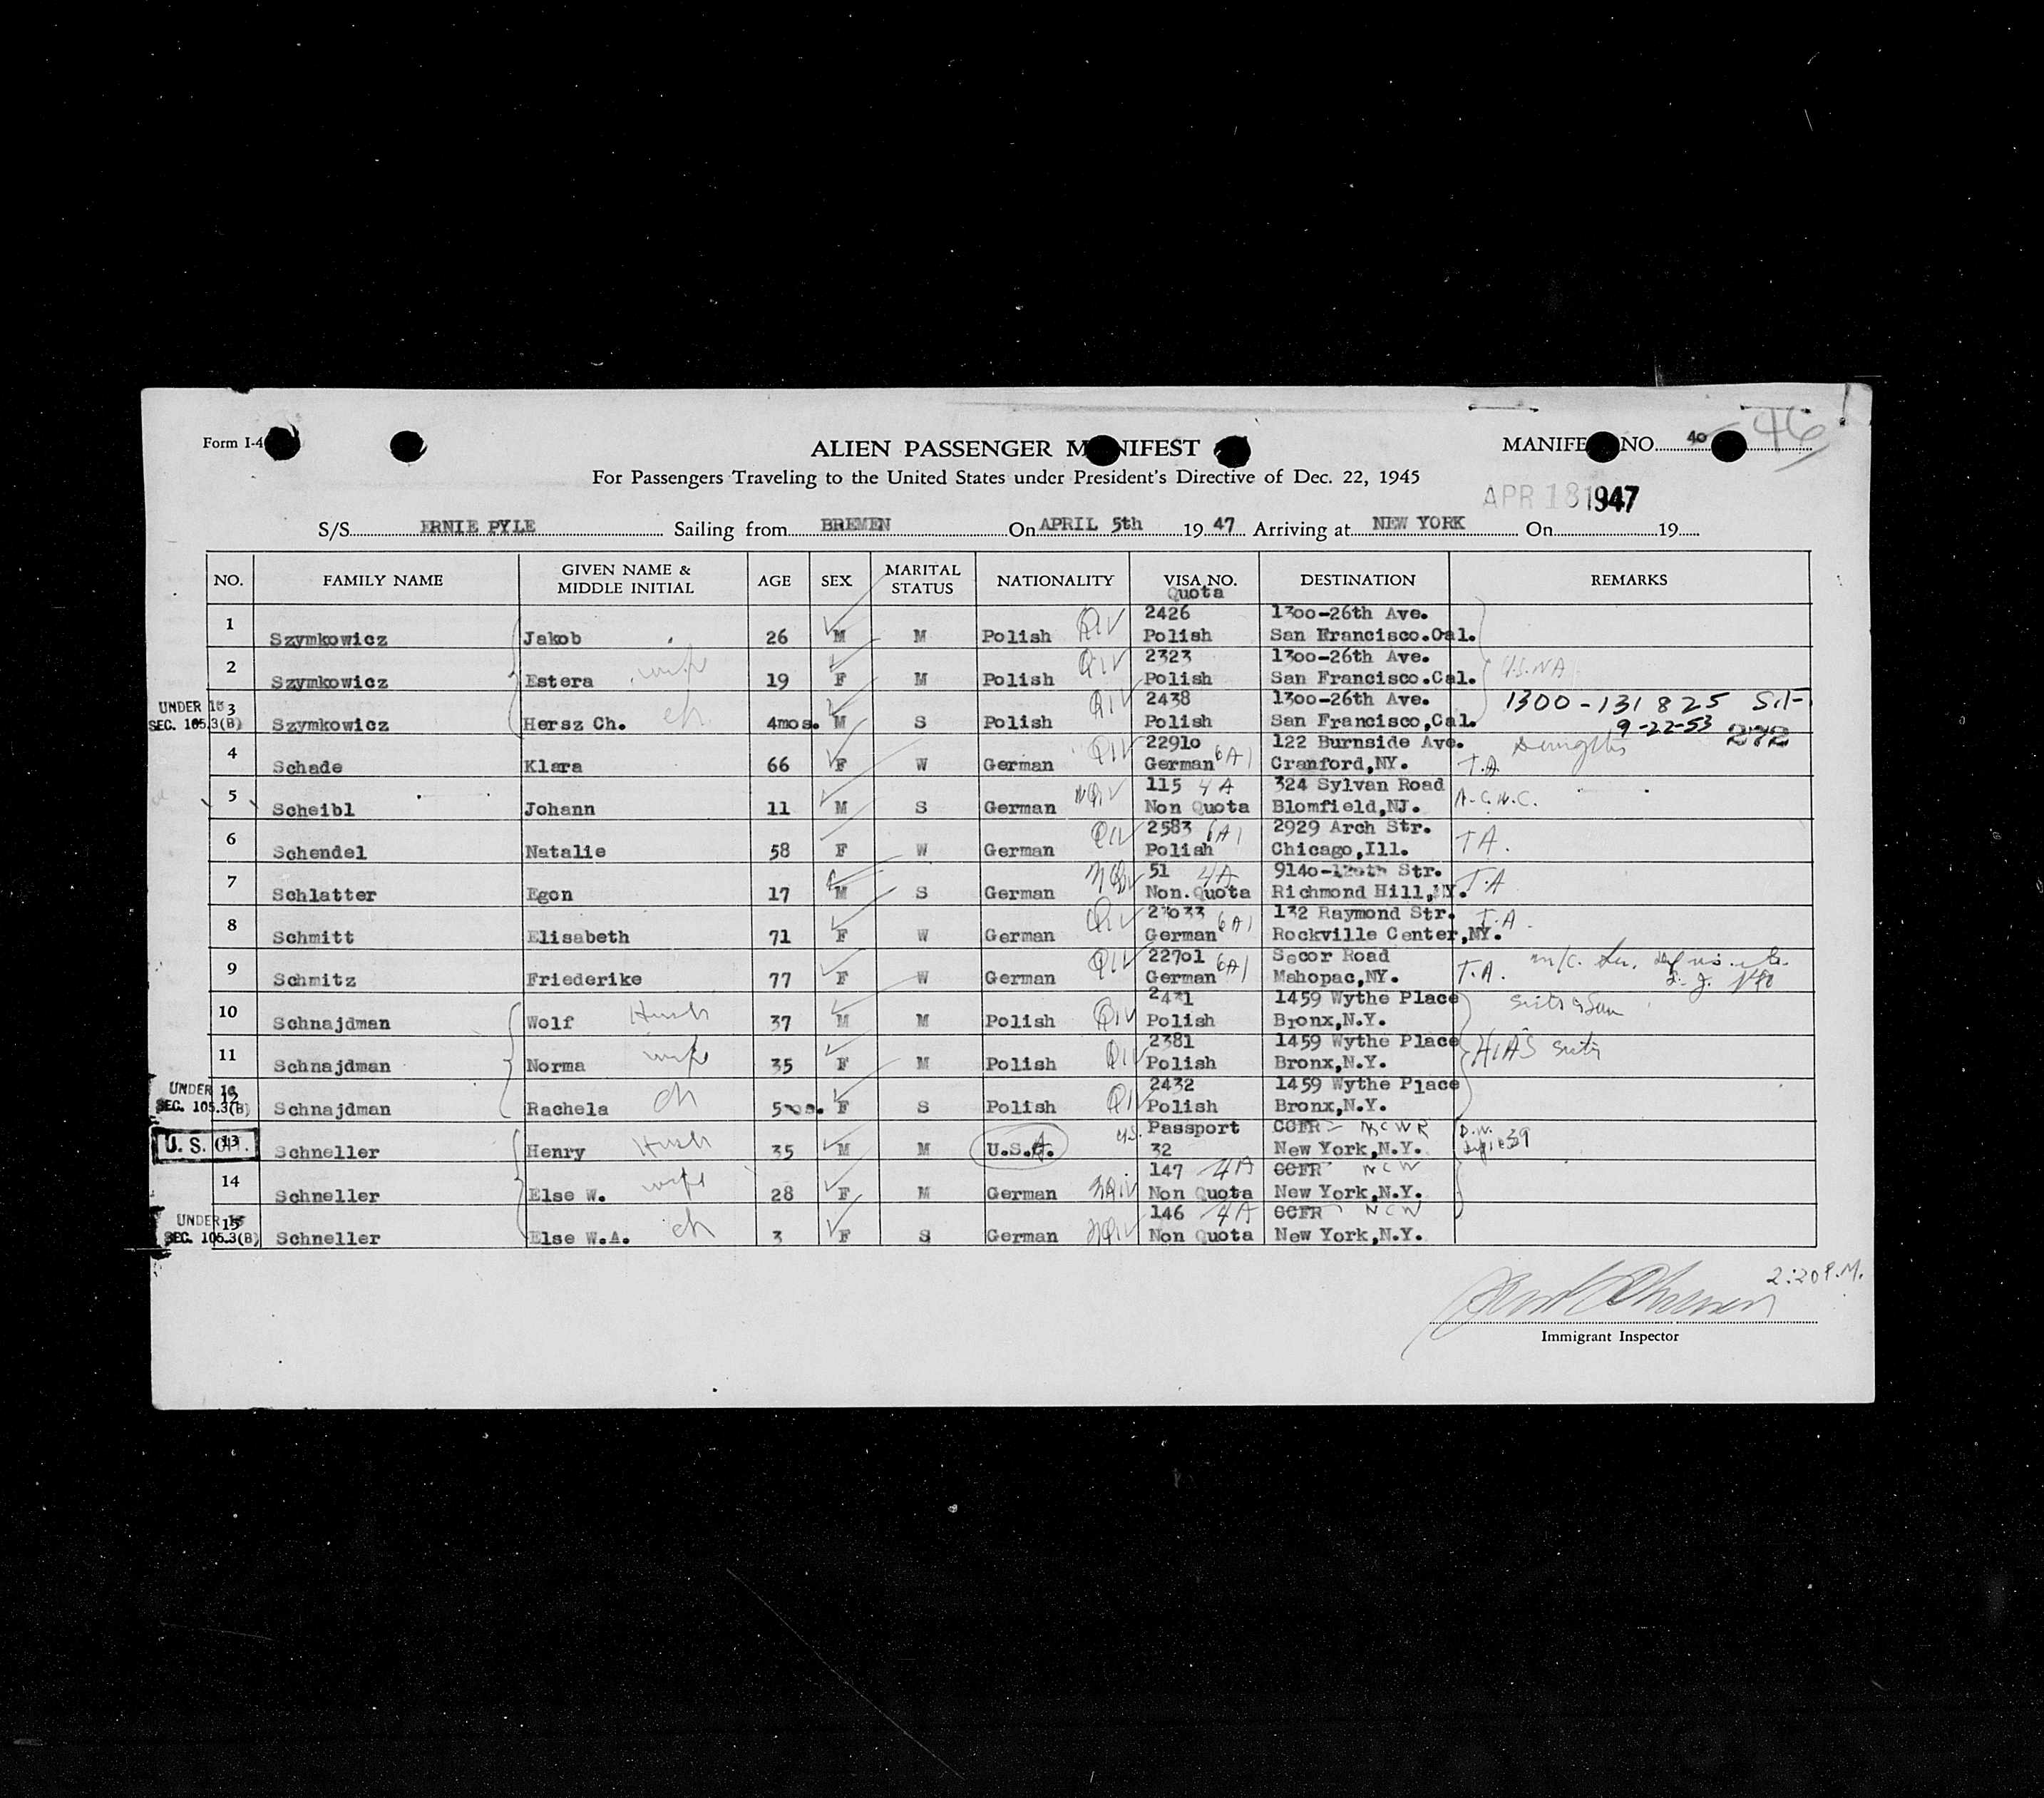 Form I-4
ALIEN PASSENGER M NIFEST
MANIFE NO. 40 46
For Passengers Traveling to the United States under President's Directive of Dec. 22, 1945
APR 18 1947
S/S ERNIE PYLE Sailing from BREMEN On APRIL 5th 19 47 Arriving at NEW YORK On 19
NO. FAMILY NAME GIVEN NAME & MIDDLE INITIAL AGE SEX MARITAL STATUS NATIONALITY VISA NO. DESTINATION REMARKS
Quota
1 2426 1300-26th Ave.
Szymkowicz Jakob 26 M M Polish QIV Polish San Francisco.Cal.
2 2323 1300-26th Ave.
Szymkowicz Estera wife 19 F M Polish QIV Polish San Francisco.Cal. U.S.N.A
UNDER 16 3 2438 1300-26th Ave. 1300-131825
SEC. 105.3(B) Szymkowicz Hersz Ch. ch 4mos. M S Polish QIV Polish San Francisco,Cal. 9-22-53 272
4 22910 122 Burnside Ave.
Schade Klara 66 F W German QIV German 6A1 Cranford,NY. T.A.
5 115 4A 324 Sylvan Road
Scheibl Johann 11 M S German NQIV Non Quota Blomfield,NJ. A.C.N.C.
6 2583 6A1 2929 Arch Str.
Schendel Natalie 58 F W German QIV Polish Chicago,Ill. TA.
7 51 4A 9140-120th Str.
Schlatter Egon 17 M S German NQIV Non.Quota Richmond Hill,NY. T.A
8 23033 6A1 132 Raymond Str. T.A.
Schmitt Elisabeth 71 F W German QIV German Rockville Center,NY.
9 22701 6A1 Secor Road
Schmitz Friederike 77 F W German QIV German Mahopac,NY. T.A.
10 2431 1459 Wythe Place
Schnajdman Wolf Husb 37 M M Polish QIV Polish Bronx,N.Y.
11 2381 1459 Wythe Place
Schnajdman Norma wife 35 F M Polish QIV Polish Bronx,N.Y. HIAS
UNDER 16 12 2432 1459 Wythe Place
SEC. 105.3(B) Schnajdman Rachela ch 5mos. F S Polish QIV Polish Bronx,N.Y.
U. S. CIT. 13 Passport CCFR NCWR
Schneller Henry Husb 35 M M U.S.A. 32 New York,N.Y.
14 147 4A CCFR NCW
Schneller Else W. wife 28 F M German NQIV Non Quota New York,N.Y.
UNDER 16 15 146 4A CCFR NCW
SEC. 105.3(B) Schneller Else W.A. ch 3 F S German NQIV Non Quota New York,N.Y.
2:20 P.M.
Immigrant Inspector